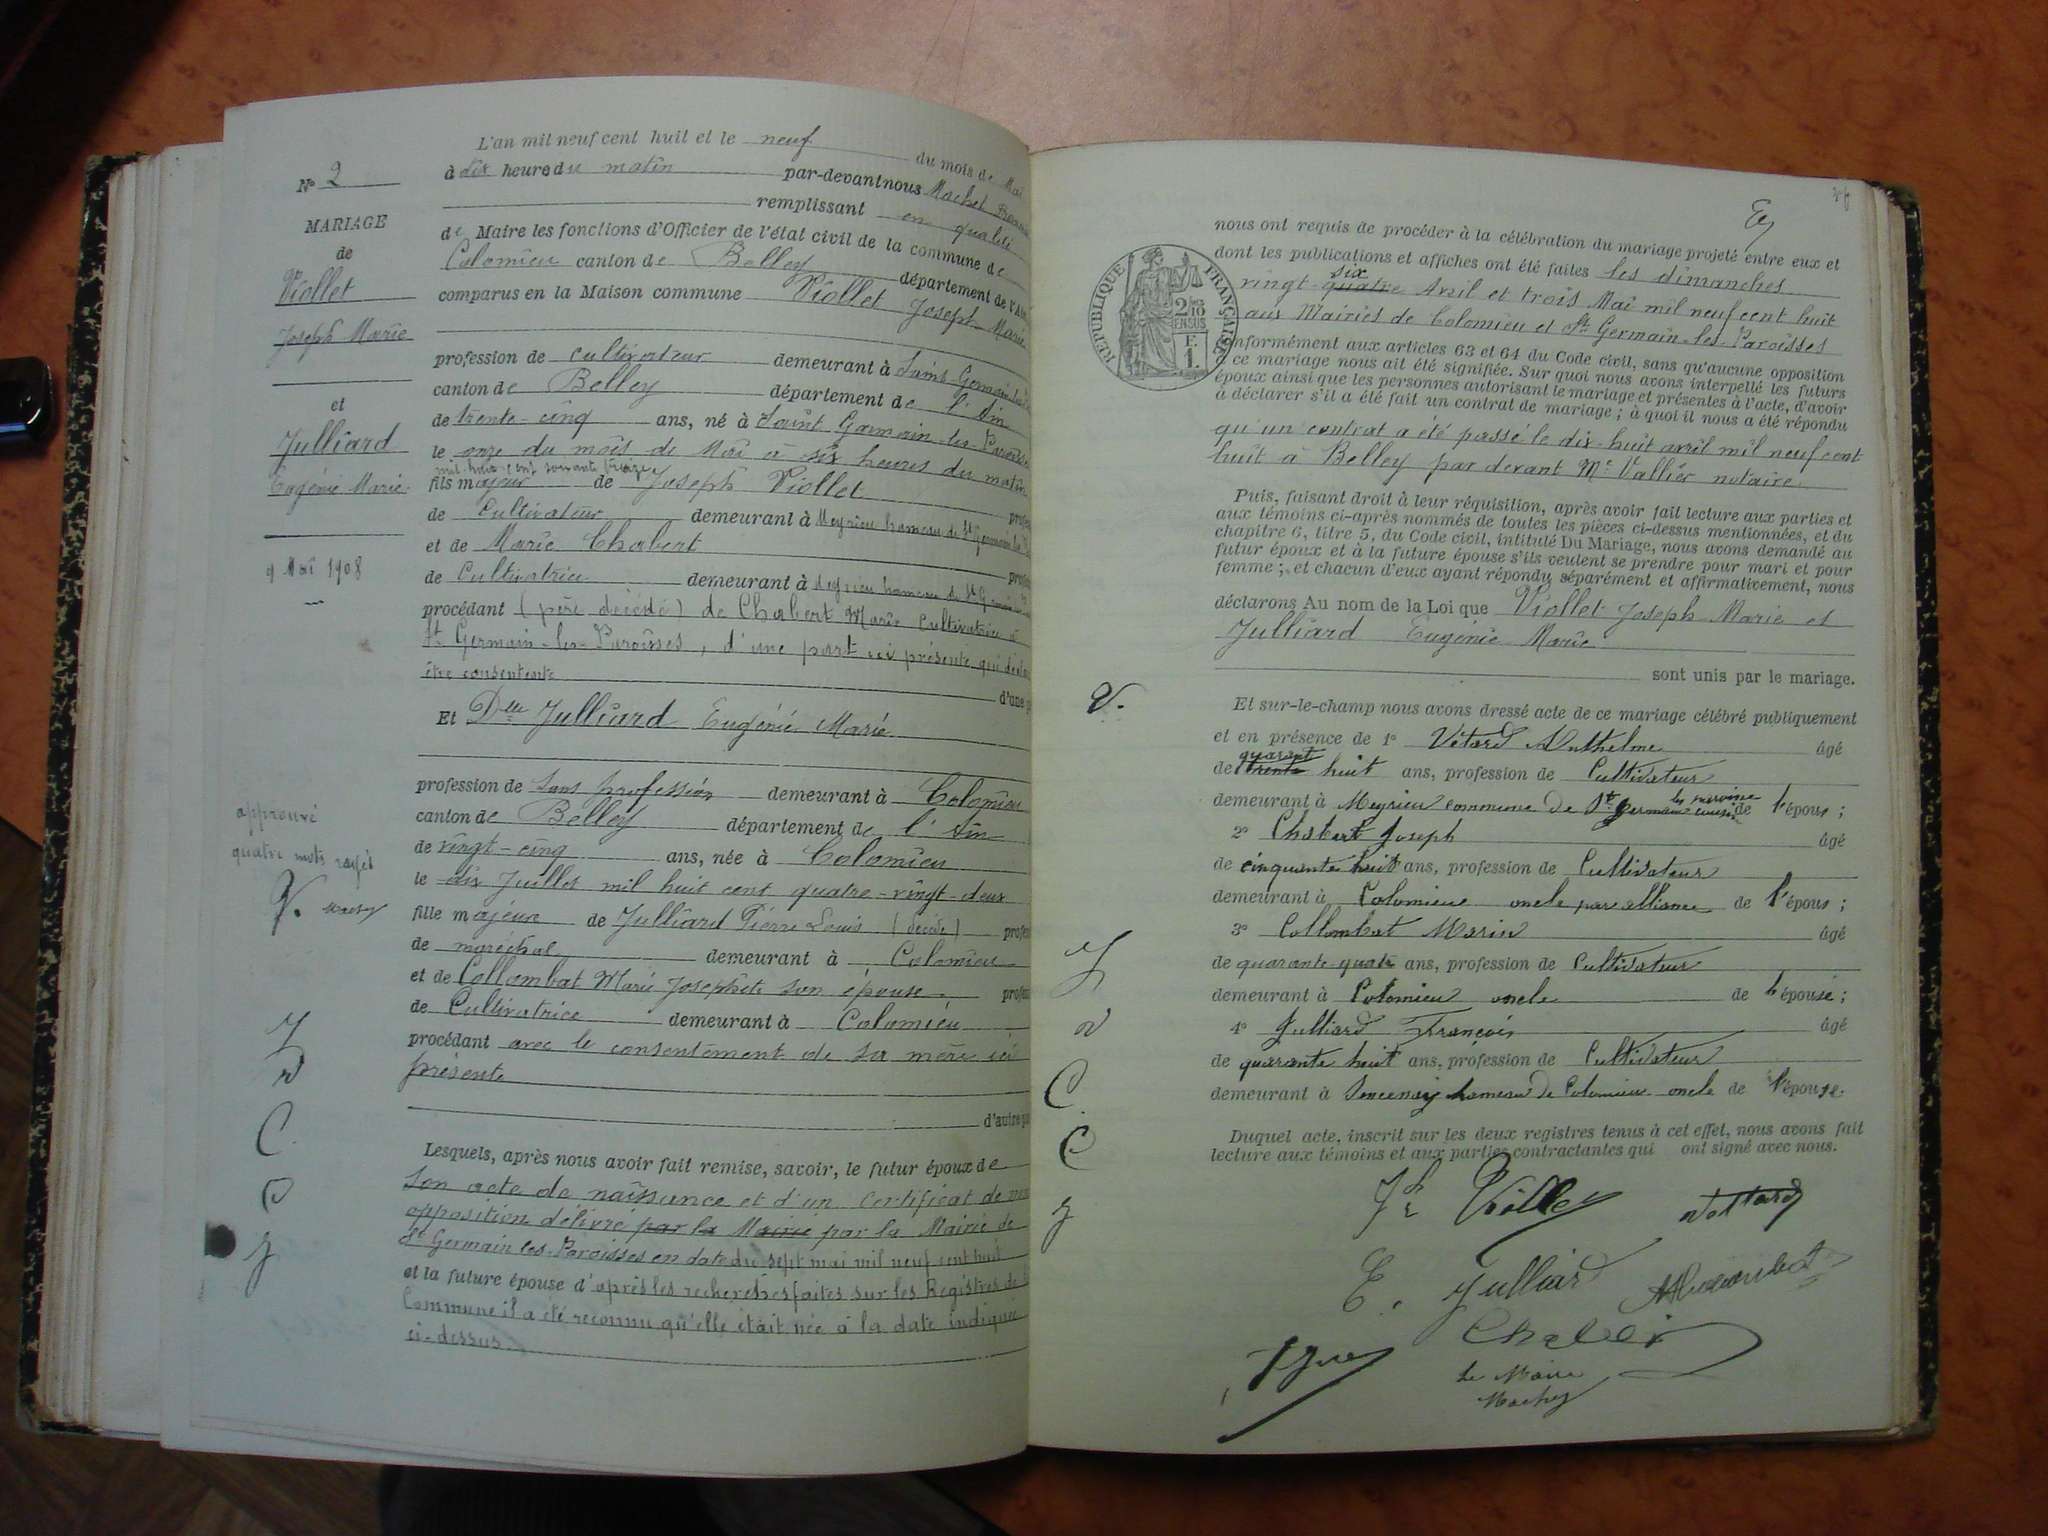 L'an mil neuf cent huit et le neuf du mois de Mai
à dix heures du matin par-devant nous Machet
remplissant en qualité
de Maire les fonctions d'Officier de l'état civil de la commune de
Colomieu canton de Belley département de l'Ain
comparus en la Maison commune Viollet Joseph Marie
profession de cultivateur demeurant à Saint Germain
canton de Belley département de l'Ain
de trente-cinq ans, né à Saint Germain-les-Paroisses
le onze du mois de Mai à six heures du matin
mil huit cent soixante treize
fils majeur de Joseph Viollet
de Cultivateur demeurant à Meyrieu hameau de St Germain
et de Marie Chabert
de Cultivatrice demeurant à Meyrieu hameau de St Germain
procédant (père décédé) de Chabert Marie Cultivatrice à
St Germain-les-Paroisses, d'une part ici présente qui
être consentente d'une
Et Dlle Julliard Eugénie Marie
profession de sans profession demeurant à Colomieu
canton de Belley département de l'Ain
de vingt-cinq ans, née à Colomieu
le dix Juillet mil huit cent quatre-vingt-deux
fille majeure de Julliard Pierre Louis (décédé)
de maréchal demeurant à Colomieu
et de Collombat Marie Josephete son épouse
de Cultivatrice demeurant à Colomieu
procédant avec le consentement de sa mère ici
présente
d'autre
Lesquels, après nous avoir fait remise, savoir, le futur époux de
son acte de naissance et d'un certificat de non
opposition délivré par la Mairie par la Mairie de
St Germain les-Paroisses en date du sept mai mil neuf cent huit
et la future épouse d'après les recherches faites sur les Registres de
Commune il a été reconnu qu'elle était née à la date indiquée
ci-dessus
N° 2
MARIAGE
de
Viollet
Joseph Marie
et
Julliard
Eugénie Marie
9 Mai 1908
approuvé
quatre mots rayés
V.
J
v
C.
J
nous ont requis de procéder à la célébration du mariage projeté entre eux et
dont les publications et affiches ont été faites les dimanches
six
vingt-quatre Avril et trois Mai mil neuf cent huit
aux Mairies de Colomieu et St Germain-les-Paroisses
conformément aux articles 63 et 64 du Code civil, sans qu'aucune opposition
à ce mariage nous ait été signifiée. Sur quoi nous avons interpellé les futurs
époux ainsi que les personnes autorisant le mariage et présentes à l'acte, d'avoir
à déclarer s'il a été fait un contrat de mariage ; à quoi il nous a été répondu
qu'un contrat a été passé le dix-huit avril mil neuf cent
huit à Belley par devant Me Vallier notaire
Puis, faisant droit à leur réquisition, après avoir fait lecture aux parties et
aux témoins ci-après nommés de toutes les pièces ci-dessus mentionnées, et du
chapitre 6, titre 5, du Code civil, intitulé Du Mariage, nous avons demandé au
futur époux et à la future épouse s'ils veulent se prendre pour mari et pour
femme ; et chacun d'eux ayant répondu séparément et affirmativement, nous
déclarons Au nom de la Loi que Viollet Joseph Marie et
Julliard Eugénie Marie
sont unis par le mariage.
Et sur-le-champ nous avons dressé acte de ce mariage célébré publiquement
et en présence de 1° Vétard Anthelme âgé
quarant
de trente huit ans, profession de Cultivateur
demeurant à Meyrieu commune de St germain cousin de l'époux ;
2° Chabert Joseph âgé
de cinquante huit ans, profession de Cultivateur
demeurant à Colomieu oncle par alliance de l'époux ;
3° Collombat Marin âgé
de quarante-quatre ans, profession de Cultivateur
demeurant à Colomieu oncle de l'épouse ;
4° Julliard François âgé
de quarante huit ans, profession de Cultivateur
demeurant à hameau de Colomieu oncle de l'épouse.
Duquel acte, inscrit sur les deux registres tenus à cet effet, nous avons fait
lecture aux témoins et aux parties contractantes qui ont signé avec nous.
Jh Viollet
E. Julliard
Le Maire
V.
J
v
C.
C
J
RÉPUBLIQUE FRANÇAISE
2/10 EN SUS
F
1.